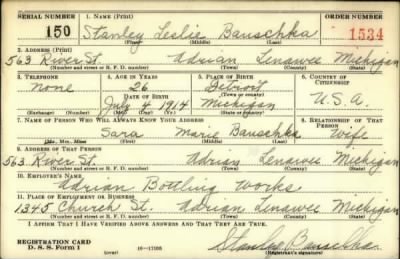 SERIAL NUMBER 1. NAME (Print) ORDER NUMBER
150 Stanley Leslie Bauschka 1534
(First) (Middle) (Last)
2. ADDRESS (Print)
563 River St. Adrian Lenawee Michigan
(Number and street or R. F. D. number) (Town) (County) (State)
3. TELEPHONE 4. AGE IN YEARS 5. PLACE OF BIRTH 6. COUNTRY OF CITIZENSHIP
none 26 Detroit
DATE OF BIRTH (Town or county)
July 4 1914 Michigan U.S.A.
(Mo.) (Day) (Yr.) (State or country)
7. NAME OF PERSON WHO WILL ALWAYS KNOW YOUR ADDRESS 8. RELATIONSHIP OF THAT PERSON
Sara Marie Bauschka Wife
(Mr., Mrs., Miss) (First) (Middle) (Last)
9. ADDRESS OF THAT PERSON
563 River St. Adrian Lenawee Michigan
(Number and street or R. F. D. number) (Town) (County) (State)
10. EMPLOYER'S NAME
Adrian Bottling Works
11. PLACE OF EMPLOYMENT OR BUSINESS
1345 Church St. Adrian Lenawee Michigan
(Number and street or R. F. D. number) (Town) (County) (State)
I AFFIRM THAT I HAVE VERIFIED ABOVE ANSWERS AND THAT THEY ARE TRUE.
REGISTRATION CARD
D. S. S. Form 1 (over) 16-17105 Stanley Bauschka
(Registrant's signature)